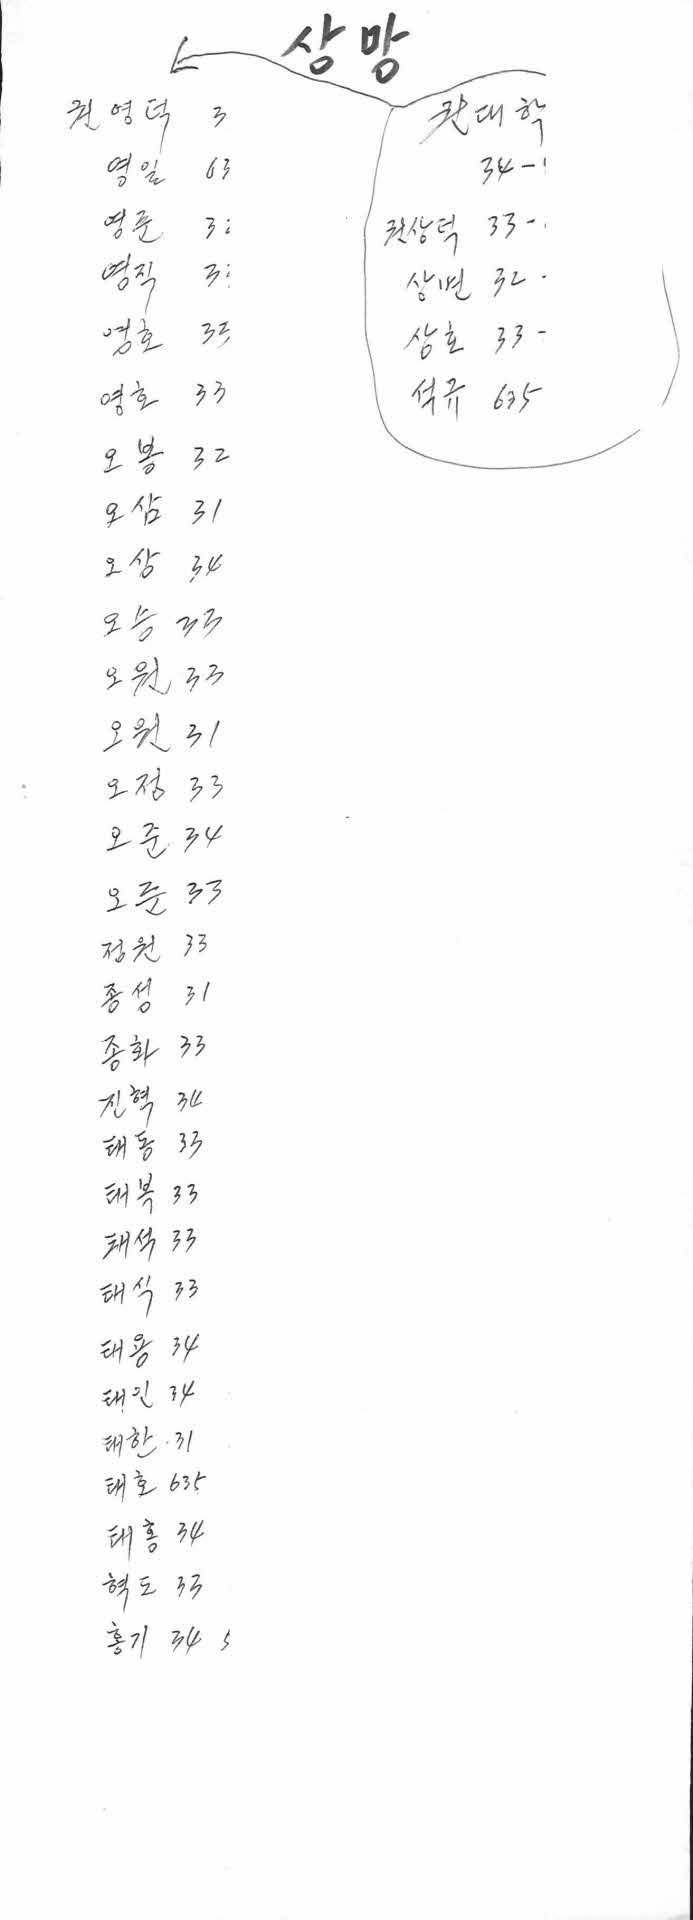 상망
권영덕 3
영일 63
영준 3
영직 3
영호 33
영호 33
오봉 32
오삼 31
오상 34
오승 33
오원 33
오원 31
오정 33
오준 34
오준 33
정원 33
종성 31
종화 33
진혁 34
태동 33
태복 33
태석 33
태식 33
태용 34
태인 34
태한 31
태호 635
태홍 34
혁도 33
홍기 34 5
권대학
34-
권상덕 33-
상면 32-
상호 33-
석규 635